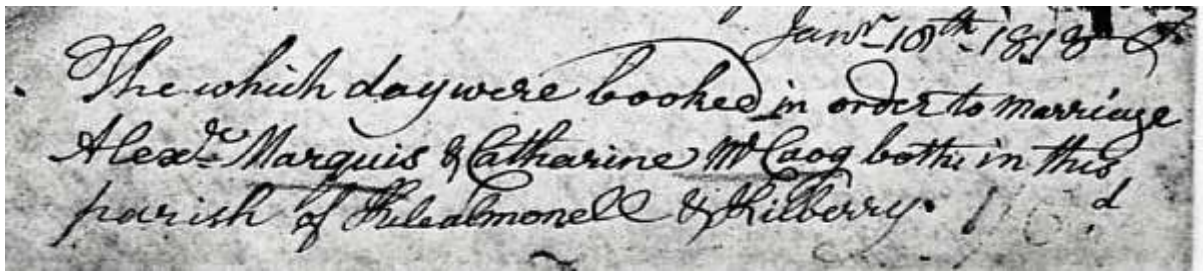 Janr. 18th. 1818
The which day were booked in order to marriage
Alexdr. Marquis & Catharine McCaog both in this
parish of Kilcalmonell & Kilberry.
d